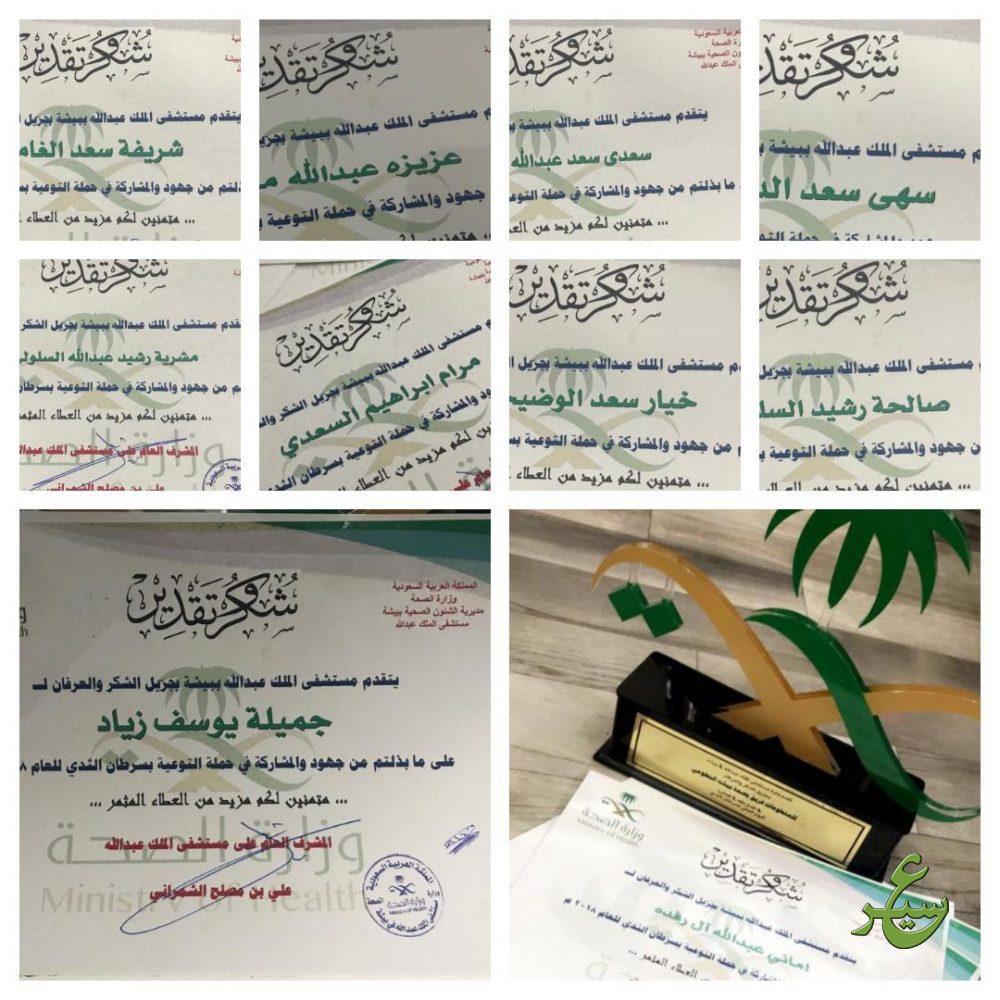 شكر وتقدير
يتقدم مستشفى الملك عبدالله ببيشة بجزيل ا
شريفة سعد الغام
بذلتم من جهود والمشاركة في حملة التوعية ب
... متمنين لكم مزيد من العطاء
شكر وتقدير
دم مستشفى الملك عبدالله ببيشة بجزي
عزيزه عبدالله م
جهود والمشاركة في حملة التوعية ب
... متمنين لكم
شكر وتقدير
وزارة الصحة
الشئون الصحية ببيشة
الملك عبدالله
يتقدم مستشفى الملك عبدالله ببيشة بجزيل
سعدى سعد عبدالله
ما بذلتم من جهود والمشاركة في حملة التوع
... متمنين لكم مزيد من العطا
شكر وتقدير
م مستشفى الملك عبدالله ببيشة بج
سهى سعد الد
جهود والمشاركة في حملة التوعية ب
... متمنين لكم مزيد من العط
شكر وتقدير
تقدم مستشفى الملك عبدالله ببيشة بجزيل الشكر
مشرية رشيد عبدالله السلولي
تم من جهود والمشاركة في حملة التوعية بسرطان
... متمنين لكم مزيد من العطاء المثمر
وزارة الصحة
المشرف العام على مستشفى الملك عبدالله
علي بن مصلح الشمراني
شكر وتقدير
م مستشفى الملك عبدالله ببيشة بجزيل الشكر والع
مرام ابراهيم السعدي
جهود والمشاركة في حملة التوعية بسرطان الثدي
... متمنين لكم مزيد من العطاء
شكر وتقدير
دم مستشفى الملك عبدالله ببيشة بجزيل الش
خيار سعد الوضيح
تم من جهود والمشاركة في حملة التوعية ب
... متمنين لكم مزيد من العطاء
شكر وتقدير
دم مستشفى الملك عبدالله ببيشة بجزيل
صالحة رشيد السل
م من جهود والمشاركة في حملة التوعية ب
... متمنين لكم مزيد من العطا
المملكة العربية السعودية
وزارة الصحة
مديرية الشئون الصحية ببيشة
مستشفى الملك عبدالله
شكر وتقدير
يتقدم مستشفى الملك عبدالله ببيشة بجزيل الشكر والعرفان لـ
جميلة يوسف زياد
على ما بذلتم من جهود والمشاركة في حملة التوعية بسرطان الثدي للعام ٨
... متمنين لكم مزيد من العطاء المثمر ...
وزارة الصحة
Ministry of Health
المشرف العام على مستشفى الملك عبدالله
علي بن مصلح الشمراني
المملكة العربية السعودية
وزارة الصحة
وزارة الصحة
Ministry of Health
شكر وتقدير
يتقدم مستشفى الملك عبدالله ببيشة بجزيل الشكر والعرفان لـ
اماني عبدالله ال رفده
مشاركة في حملة التوعية بسرطان الثدي للعام ٢٠١٨ م
العطاء المثمر ...
عسير